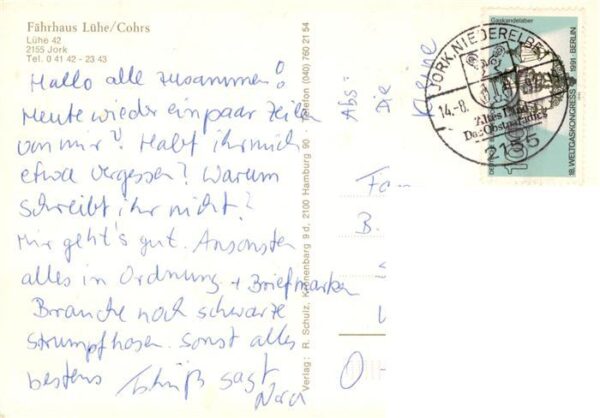 Fährhaus Lühe/Cohrs
Lühe 42
2155 Jork
Tel. 0 41 42 - 23 43
Hallo alle zusammen!
Heute wieder ein paar Zeilen
von mir! Habt ihr mich
etwa vergessen? Warum
schreibt ihr nicht?
Mir geht's gut. Ansonsten
alles in Ordnung + Briefmarken
Brauche noch schwarze
Strumpfhosen. Sonst alles
bestens Tschüß sagt
Nora
Verlag: R. Schulz, Kronenbarg 9d, 2100 Hamburg 90 · Telefon (040) 760 21 54
Abs:
Die
Kleine
Fa
B.
O-
JORK, NIEDERELBE
14.-8.
Altes Land
Das Obstparadies
2155
Gaskandelaber
100
18. WELTGASKONGRESS 1991 BERLIN